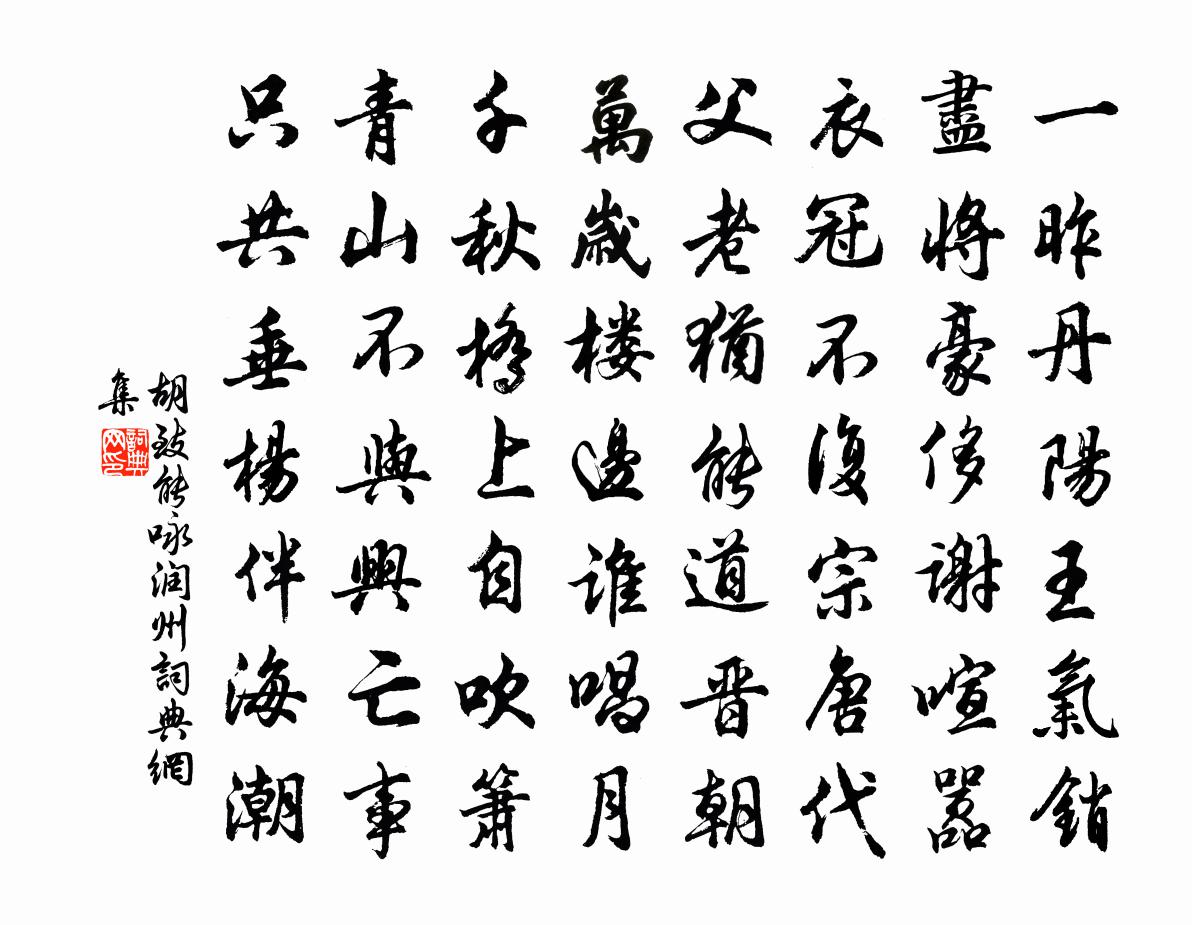 一昨丹陽王氣銷
盡將豪侈謝喧囂
衣冠不復宗唐代
父老猶能道晋朝
萬歲楼邊誰唱月
千秋橋上自吹簫
青山不與興亡事
只共垂楊伴海潮
胡致能咏润州詞典網
集
詞典
网印